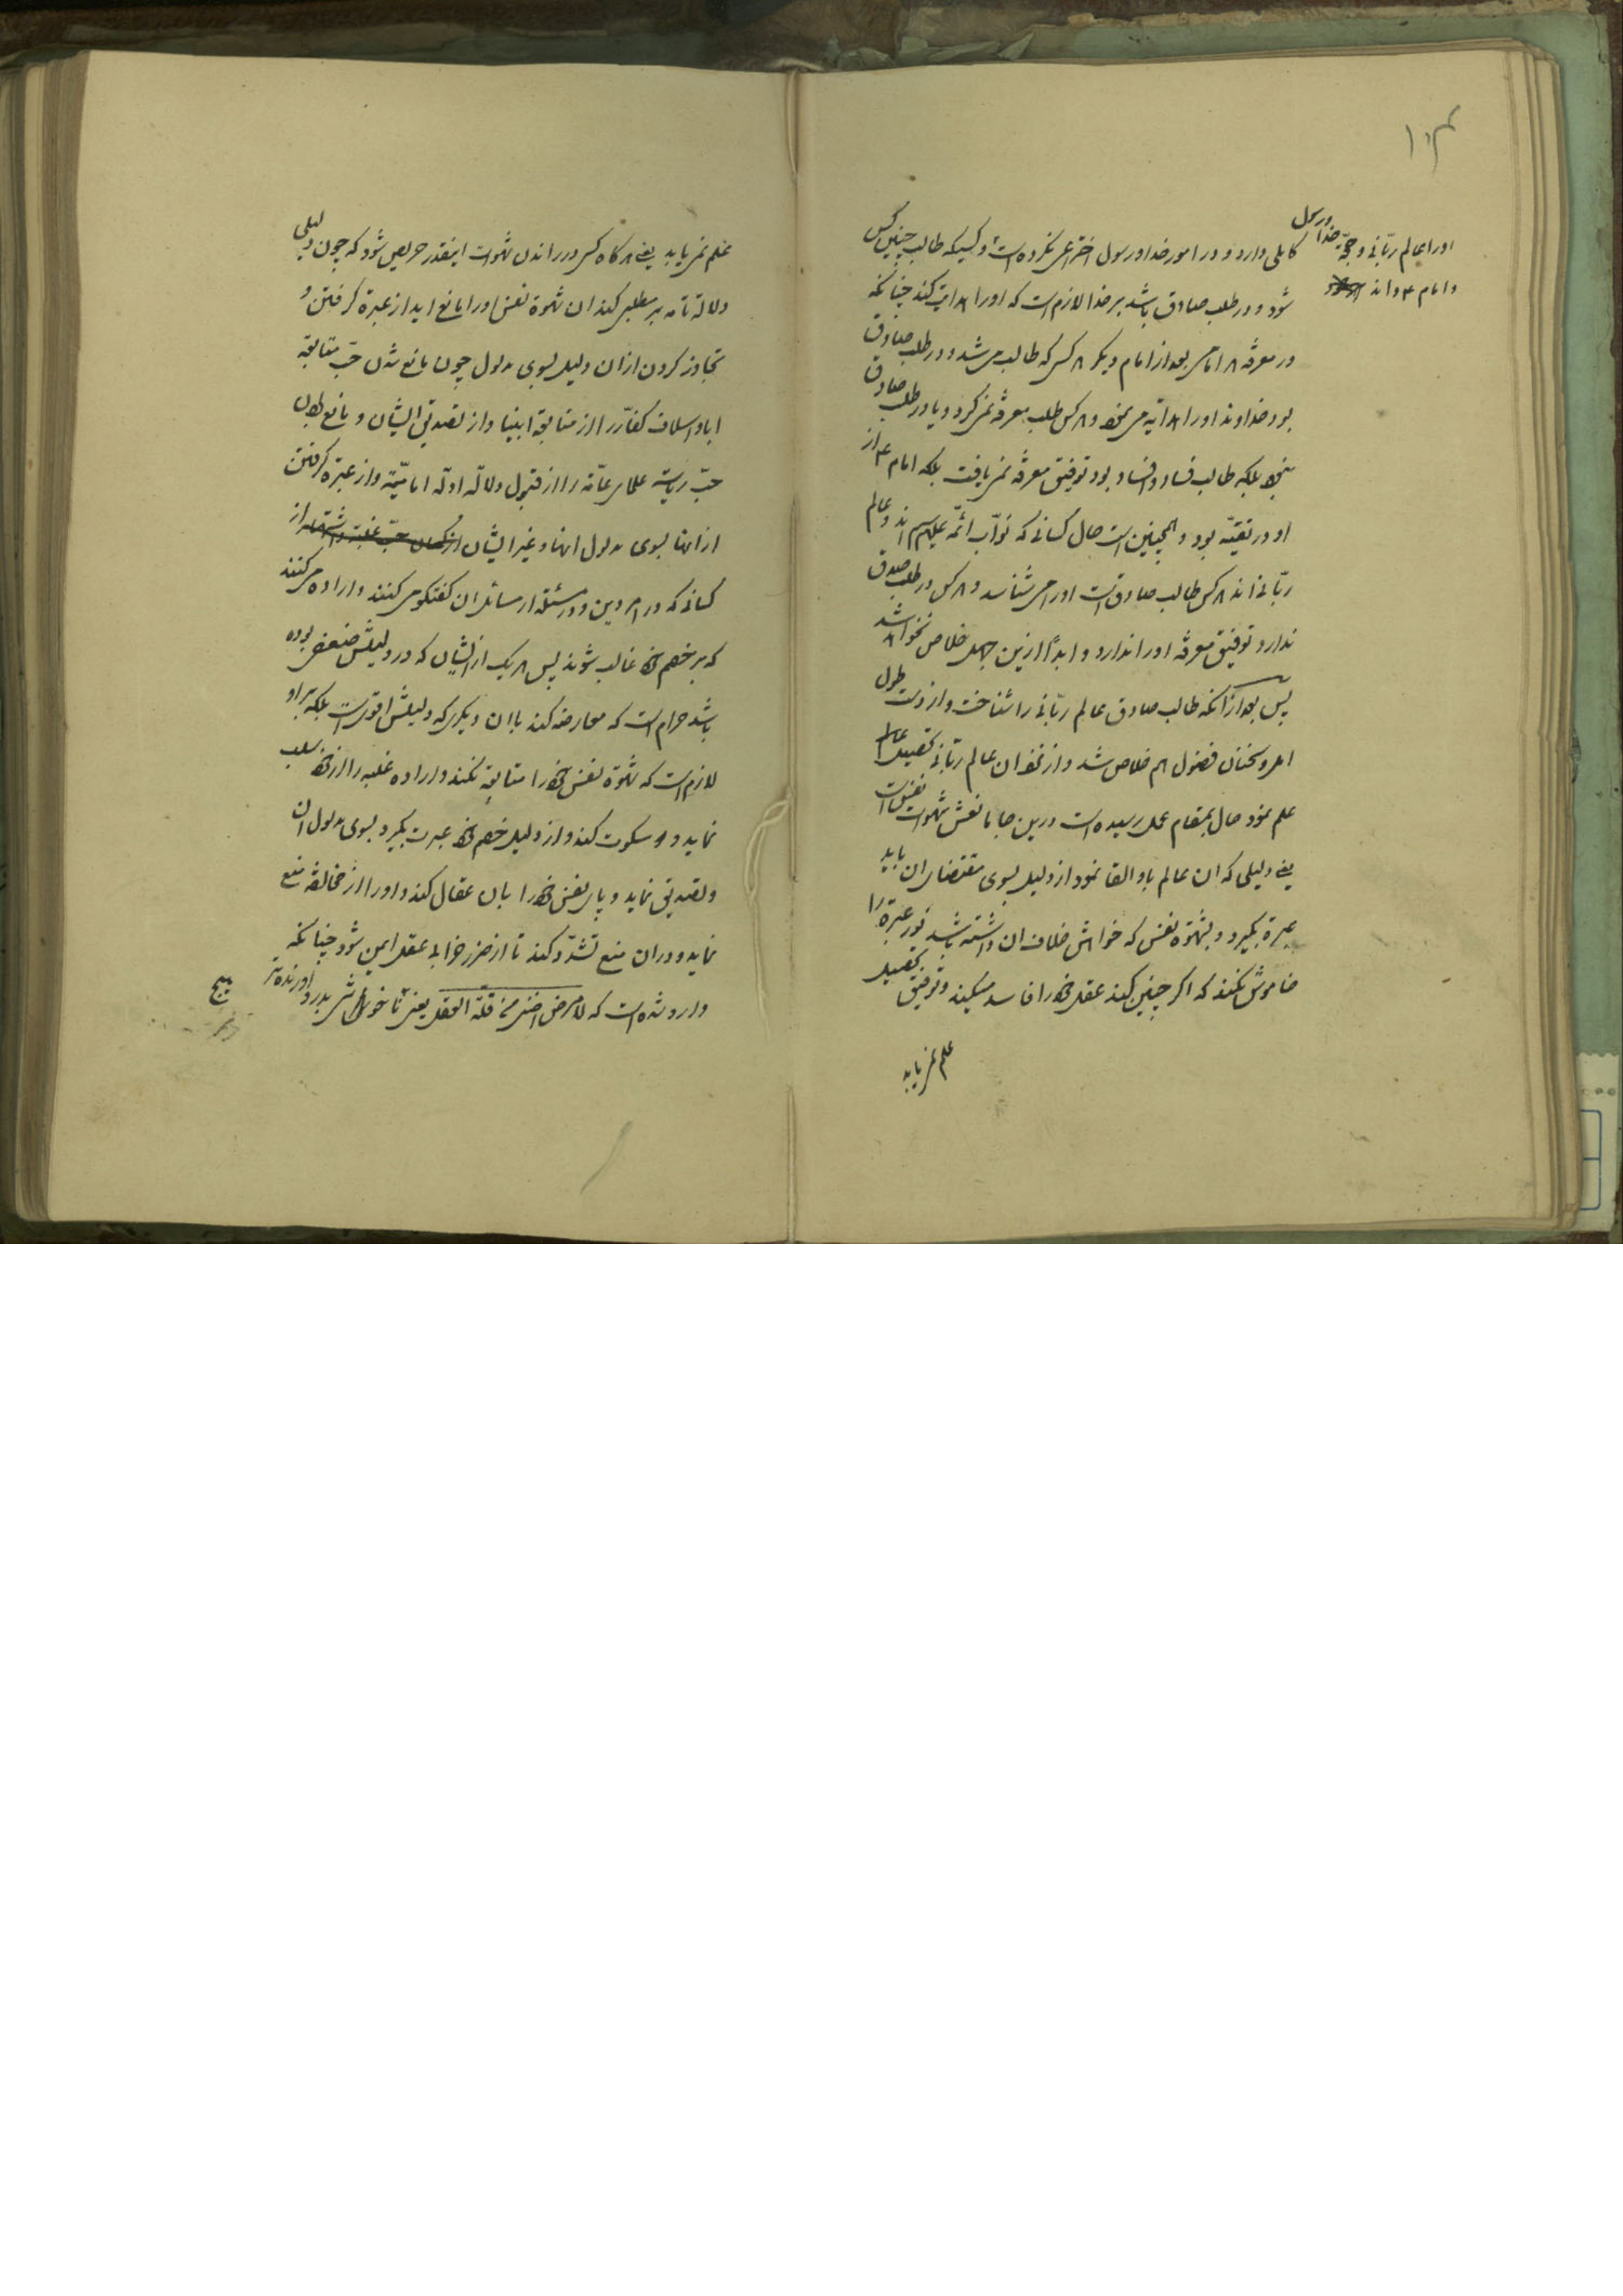 ۱۰۴
اورا عالم ربّانی و حجّة خدا و رسول
و امام ع داند
کاملی دارد و در امور خدا و رسول اختراعی نکرده است و کسیکه طالب چنین کس
شود و در طلب صادق باشد بر خدا لازم است که اورا هدایت کند چنانکه
در معرفة هر امامی بعد از امام دیگر هر کسی که طالب می شد و در طلب صادق
بود خداوند اورا هدایه می نمود و هر کس طلب معرفة نمی کرد و یا در طلب صادق
نبود بلکه طالب فساد و افساد بود توفیق معرفة نمی یافت بلکه امام ع از
او در تقیّه بود و همچنین است حال کسانی که نوّاب ائمّه علیهم السلام اند و عالم
ربّانی اند هر کس طالب صادق است اورا می شناسد و هر کس در طلب صدق
ندارد توفیق معرفة اورا ندارد و ابداً ازین جهل خلاص نخواهد شد
پس بعد از آنکه طالب صادق عالم ربّانی را شناخت و از دست طول
امل و سخنان فضول هم خلاص شد و از نزد ان عالم ربّانی تحصیل
علم نمود حال بمقام عمل رسیده است درین جا با نفس شهوات نفس است
یعنی دلیلی که ان عالم باو القا نمود از دلیل بسوی مقتضای ان باید
عبرة بگیرد و بشهوة نفس که خواهش خلاف ان داشته باشد نور عبرة را
خاموش نکند که اگر چنین کند عقل خود را فاسد میکند و توفیق تحصیل
علم نمی یابد
علم نمی یابد یعنی هر گاه کسی در راندن شهوات اینقدر حریص شود که چون دلیلی
دلالة تامه بر مطلبی کند ان شهوة نفس اورا مانع اید از عبرة گرفتن و
تجاوز کردن از ان دلیل بسوی مدلول چون مانع شدن حبّ متابعة
اباء و اسلاف کفّار را از متابعة انبیا و از تصدیق ایشان و مانع بودن
حبّ ریاسة علمای عامّه را از قبول دلالة ادلّه امامیّه و از عبرة گرفتن
از انها بسوی مدلول انها و غیر ایشان از
کسانی که در امر دین و در مسئله از مسائل ان گفتگو می کنند و اراده می کنند
که بر خصم خود غالب شوند پس هر یک از ایشان که در دلیلش ضعفی بوده
باشد حرام است که معارضه کند با ان دیگری که دلیلش اقوی است بلکه بر او
لازم است که شهوة نفس خود را متابعة نکند و اراده غلبه را از خود سلب
نماید و سکوت کند و از دلیل خصم خود عبرت بگیرد بسوی مدلول ان
و تصدیق نماید و پای نفس خود را بان عقال کند و اورا از مخالفة منع
نماید و دران منع تشدّد کند تا از ضرر خرابی عقل ایمن شود چنانکه
وارد شده است که لا مرض اضنی من قلّة العقل یعنی ناخوشی بدرد اورنده تر
هیچ